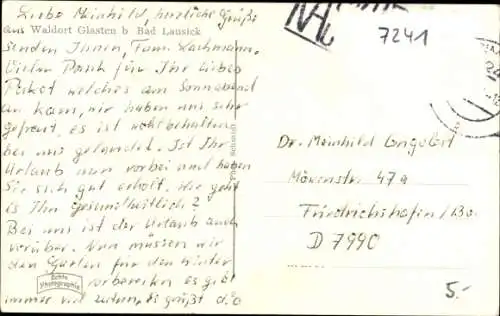 Liebe Meinhild, herzliche Grüße
aus Waldort Glasten b Bad Lausick
senden Ihnen, Fam. Lachmann.
Vielen Dank für Ihr liebes
Paket welches am Sonnabend
an kam, wir haben uns sehr
gefreut, es ist wohlbehalten
bei uns gelandet. Ist Ihr
Urlaub nun vorbei und haben
Sie sich gut erholt. Wie geht
es Ihn gesundheitlich?
Bei uns ist der Urlaub auch
vorüber. Nun müssen wir
den Garten für den Winter
vorbereiten es gibt
immer viel zu tun. Es grüßt d. O
Echte
Photographie
7241
Dr. Meinhild Englert
Möwenstr 47a
Friedrichshafen/Bo.
D 7990
5.-